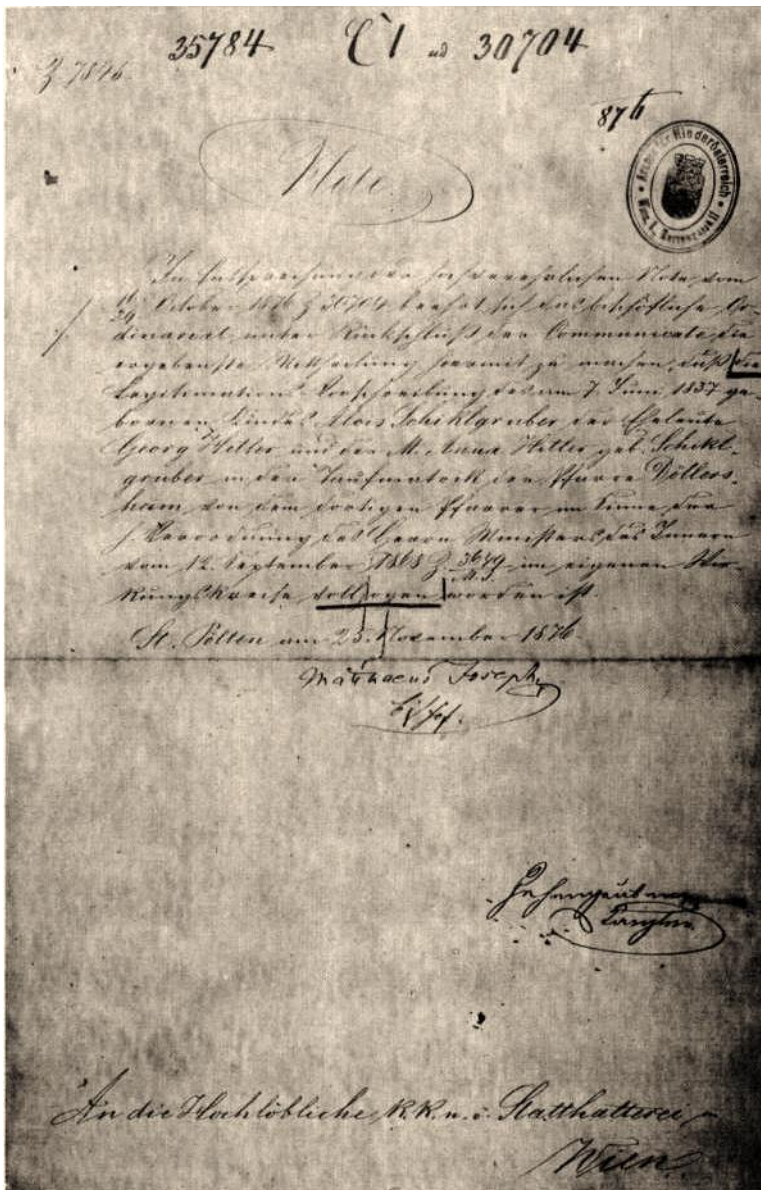 35784 C1 ad 30704
Z. 7846
87 b
Archiv für Niederösterreich
Wien, I.
Note.
In Entsprechung der hochverehrlichen Note vom
October 1876 Z. 30704 beehrt sich das bischöfliche Or-
dinariat unter Rückschluß der Communicate die
ergebenste Mittheilung hiermit zu machen, daß die
Legitimations Vorschreibung des am 7. Juni 1837 ge-
bornen Kindes Alois Schiklgruber der Eheleute
Georg Hitler und der M. Anna Hitler geb. Schickl-
gruber in der Taufmatrik der Pfarre Döllers-
heim von dem dortigen Pfarrer im Sinne der
h. Verordnung des Herrn Ministers des Innern
vom 12. September 1868 Z. 3649 im eigenen Wir-
kungskreise vollzogen worden ist.
St. Pölten am 25. November 1876.
Matthaeus Joseph,
Bischof.
Kanzler
An die Hochlöbliche k.k. n. ö. Statthalterei in
Wien.